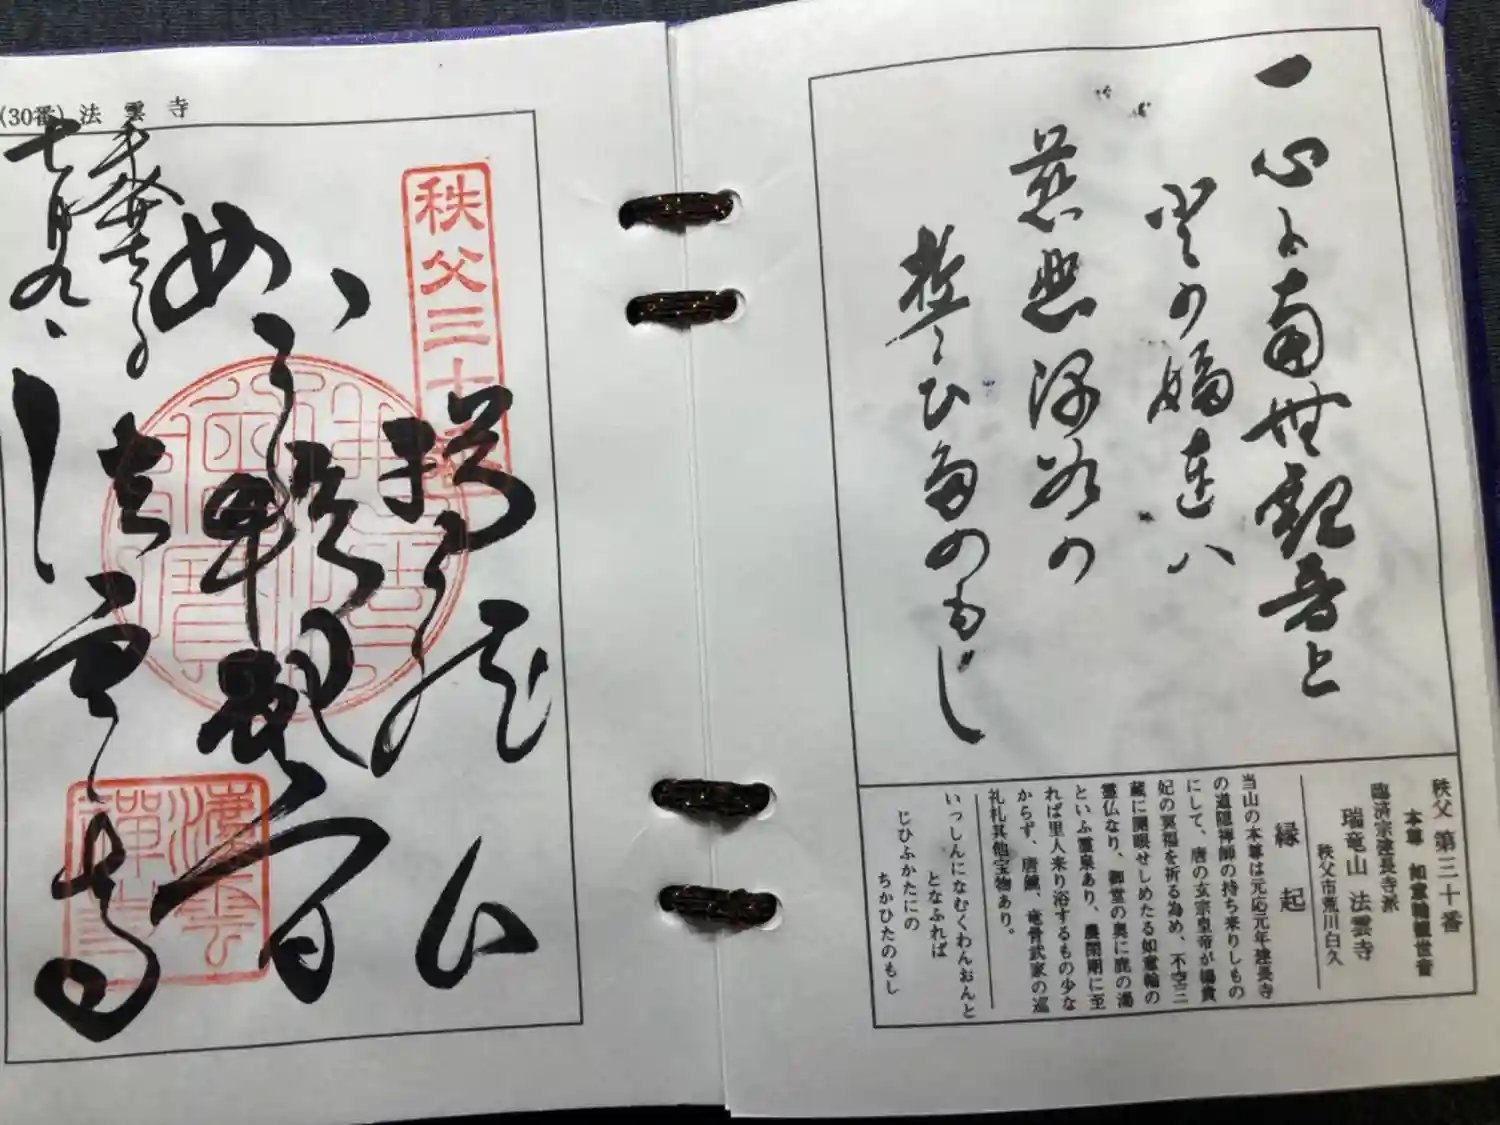 一心に南無観音と
慈悲深谷の
誓ひたのもし
秩父 第三十番
本尊 如意輪観世音
臨済宗建長寺派
瑞竜山 法雲寺
秩父市荒川白久
縁起
当山の本尊は元応元年建長寺
の道隠禅師の持ち来りしもの
にして、唐の玄宗皇帝が楊貴
妃の冥福を祈る為め、不空三
蔵に開眼せしめたる如意輪の
霊仏なり、御堂の奥に鹿の湯
といふ霊泉あり、農閑期に至
れば里人来り浴するもの少な
からず、唐鏡、竜骨武家の巡
礼札其他宝物あり。
いっしんになむくわんおんと
となふれば
じひふかたにの
ちかひたのもし
(30番) 法雲寺
秩父三十
如意輪観音
法雲寺
七月九日